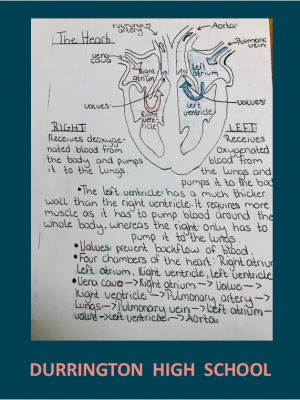 The Heart
Pulmonary artery
Aorta
Pulmonary vein
vena cava
Right atrium
Left atrium
valves
valves
Right ventricle
Left ventricle
RIGHT
Receives deoxyge-
nated blood from
the body and pumps
it to the lungs.
LEFT
Receives
oxygenated
blood from
the lungs and
pumps it to the bod
•The left ventricle has a much thicker
wall than the right ventricle. It requires more
muscle as it has to pump blood around the
whole body, whereas the right only has to
pump it to the lungs.
•Valves prevent backflow of blood.
•Four chambers of the heart: Right atrium
Left atrium, Right ventricle, Left ventricle
•Vena cava -> Right atrium -> Valve ->
Right ventricle -> Pulmonary artery ->
Lungs -> Pulmonary vein -> Left atrium -
valve -> Left ventricle -> Aorta.
DURRINGTON HIGH SCHOOL